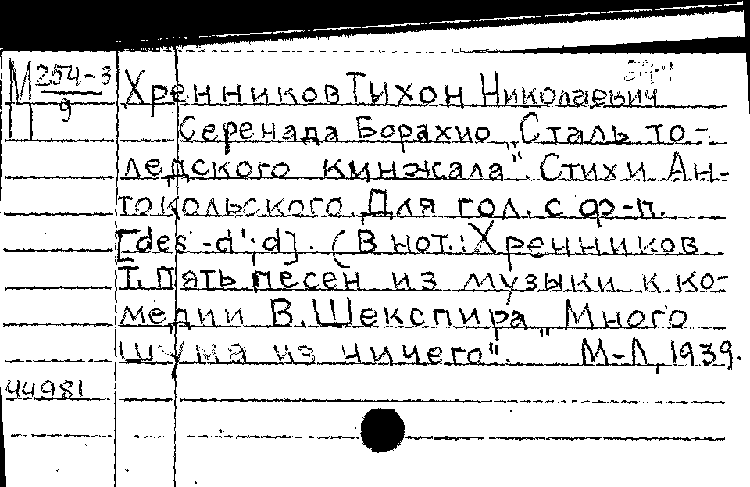 М 254-3
9
П
Хренников Тихон Николаевич
Серенада Борахио „Сталь то-
ледского кинжала". Стихи Ан-
токольского. Для гол. с ф-п.
[des-d'; d]. (В нот.: Хренников
Т. Пять песен из музыки к ко-
медии В. Шекспира „Много
шума из ничего". М-Л, 1939.
44981